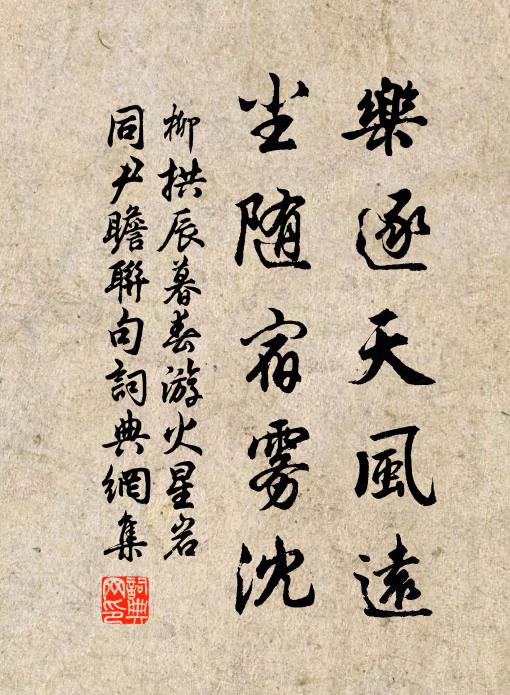 樂逐天風遠
尘随宿雾沈
柳拱辰暮春游火星岩
同尹瞻聯句詞典網集
詞典
网印